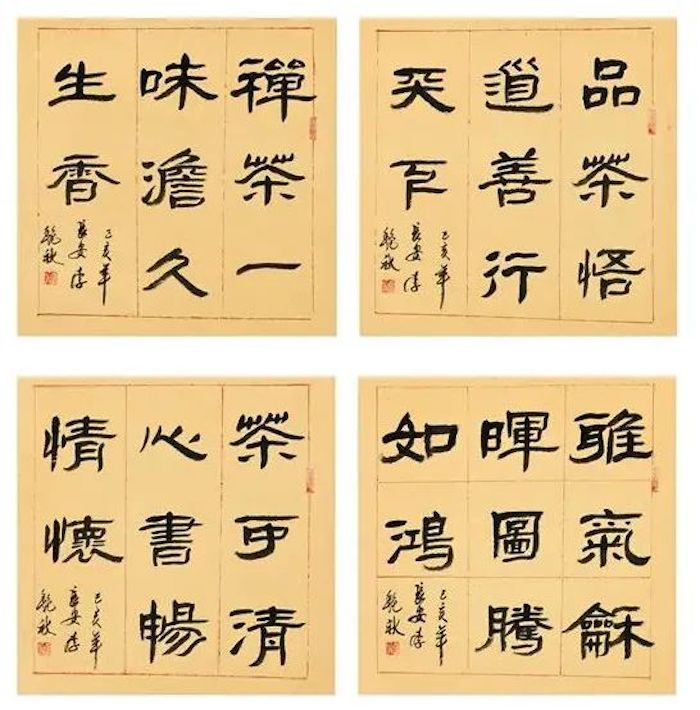 禪茶一
味澹久
生香
己亥年
長安李
秋
品茶悟
道善行
天下
己亥年
長安李
秋
茶可清
心書暢
情懷
己亥年
長安李
秋
雅氣龢
暉圖騰
如鴻
己亥年
長安李
秋